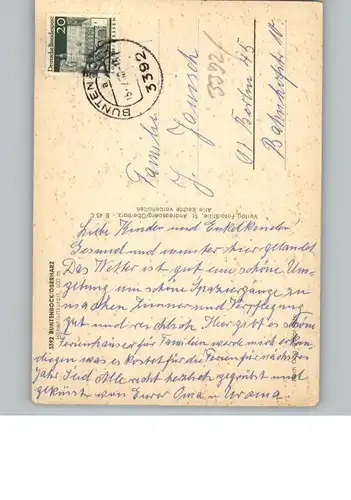 20
Deutsche Bundespost
BUNTENBOCK
3392
3392/
Familie
J. Janisch
1 Berlin 45
Bahnhofstr.
Verlag Foto-Stille, St. Andreasberg/Oberharz - B 43 C
Alle Rechte vorbehalten
3392 BUNTENBOCK/OBERHARZ
Liebe Kinder und Enkelkinder
Gesund und munter hier gelandet
Das Wetter ist gut eine schöne Um-
gebung um schöne Spaziergänge zu
machen Zimmer und Verpflegung
gut und reichlich Hier gibt es schöne
Ferienhäuser für Familien werde mich erkun-
digen was es kostet für die Ferien für nächstes
Jahr Seid Alle recht herzlich gegrüßt und
geküsst von Eurer Oma u Uroma.